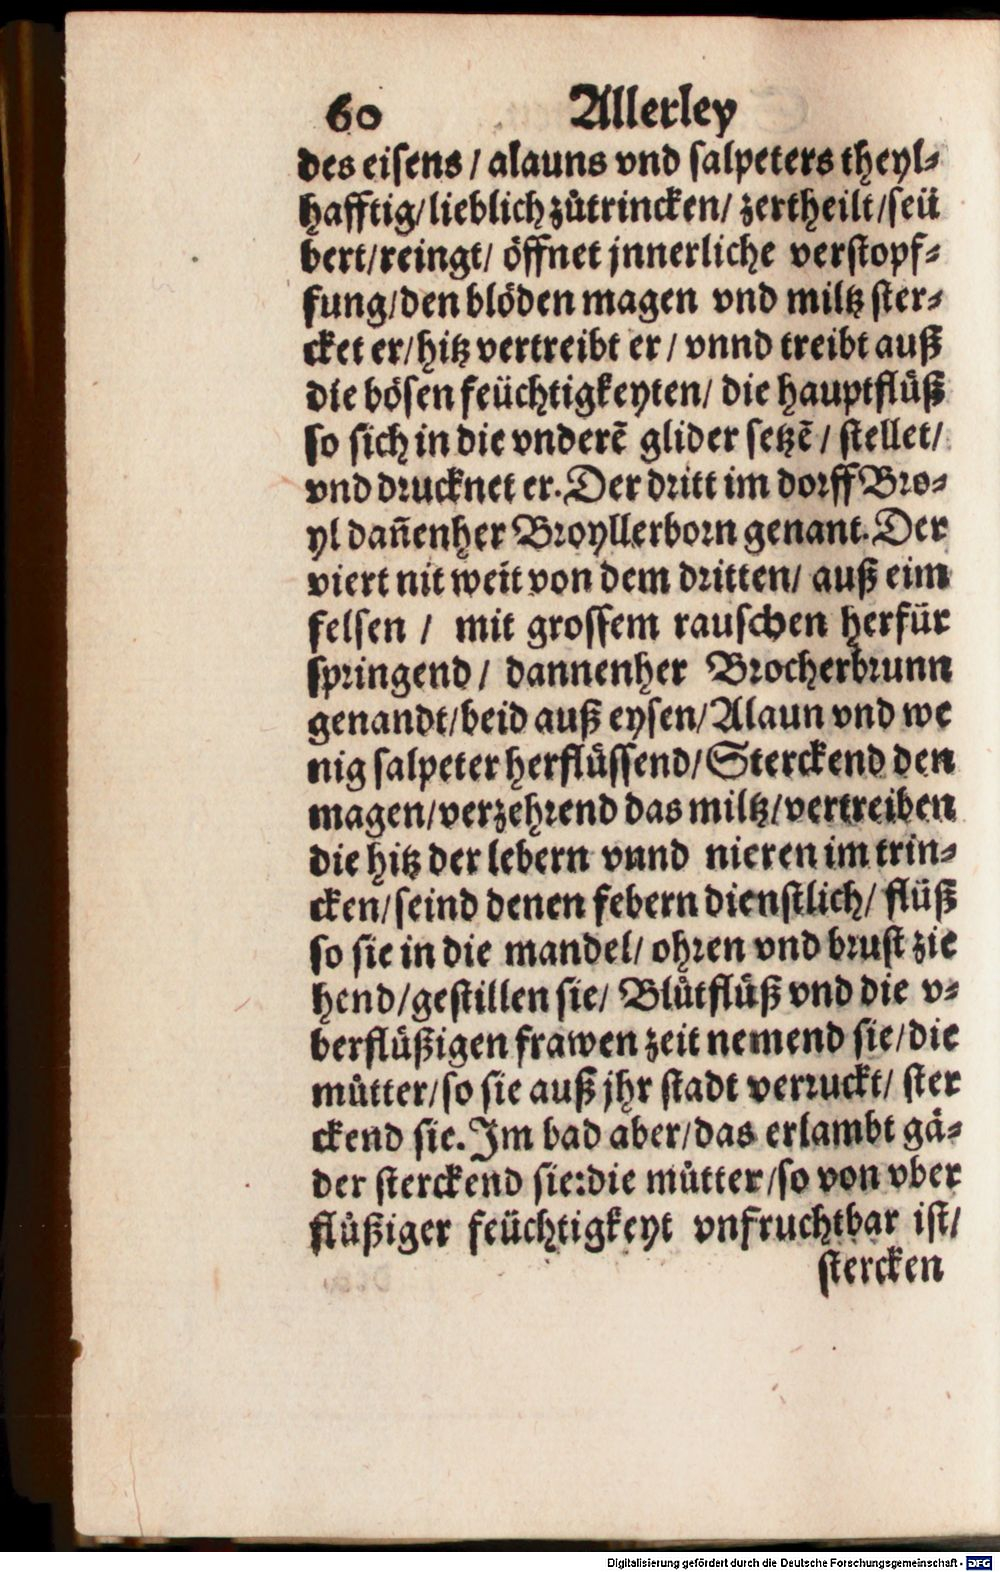 60 Allerley
des eisens / alauns vnd salpeters theyl⸗
hafftig/ lieblich zůtrincken/ zertheilt/seü
bert/reingt/ öffnet jnnerliche verstopf⸗
fung/den blöden magen vnd miltz ster⸗
cket er/hitz vertreibt er / vnnd treibt auß
die bösen feüchtigkeyten/ die hauptflüß
so sich in die vnderē glider setzē / stellet/
vnd drucknet er. Der dritt im dorff Bro⸗
yl dañenher Broyllerborn genant. Der
viert nit weit von dem dritten/ auß eim
felsen / mit grossem rauschen herfür
springend / dannenher Brocherbrunn
genandt/beid auß eysen/Alaun vnd we
nig salpeter herflüssend/Sterckend den
magen/verzehrend das miltz/vertreiben
die hitz der lebern vnnd nieren im trin⸗
cken/seind denen febern dienstlich/ flüß
so sie in die mandel/ ohren vnd brust zie
hend/gestillen sie/ Blůtflüß vnd die v⸗
berflüßigen frawen zeit nemend sie/die
můtter/so sie auß jhr stadt verruckt/ ster
ckend sie. Im bad aber/das erlambt gä⸗
der sterckend sie:die můtter/so von vber
flüßiger feüchtigkeyt vnfruchtbar ist/
stercken
Digitalisierung gefördert durch die Deutsche Forschungsgemeinschaft - DFG